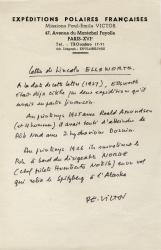 EXPÉDITIONS POLAIRES FRANÇAISES
Missions Paul-Émile VICTOR
47, Avenue du Maréchal Fayolle
PARIS-XVIe
Lettre de Lincoln ELLSWORTH
A la date de cette lettre (1927), Ellsworth
était déjà célèbre par deux expéditions qu'il
avait en partie financées.
Au printemps 1925 avec Roald Amundsen
(et 4 hommes) il avait tenté d'atteindre le
Pôle Nord avec 2 hydravions Dornier.
Au printemps 1926 ils survolèrent le
Pôle à bord du dirigeable NORGE
(chef pilote Humberto Nobile) en un vol
qui relia le Spitzberg à l'Alaska
P.E. VICTOR